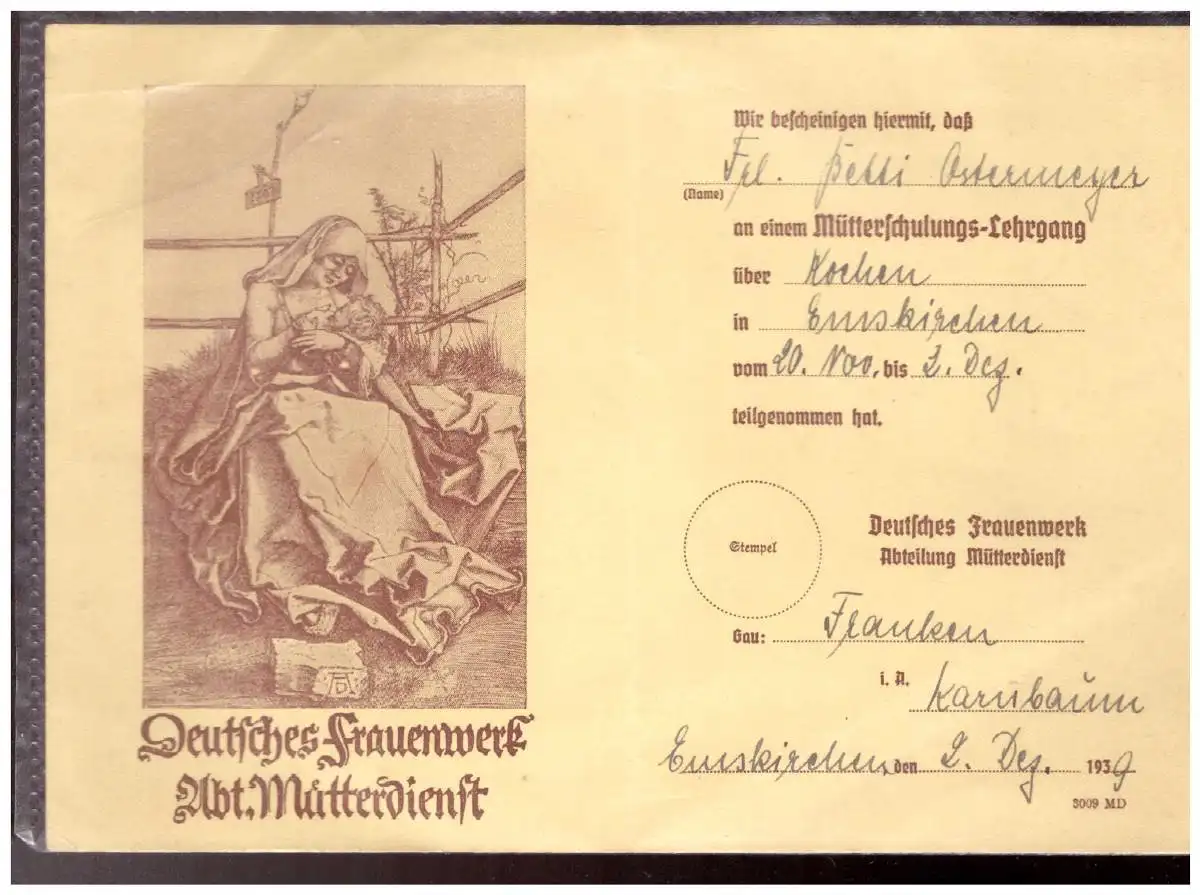 Deutsches Frauenwerk
Abt. Mütterdienst
Wir bescheinigen hiermit, daß
Frl. Betti Ostermeyer
(Name)
an einem Mütterschulungs-Lehrgang
über Kochen
in Emskirchen
vom 20. Nov. bis 2. Dez.
teilgenommen hat.
Stempel
Deutsches Frauenwerk
Abteilung Mütterdienst
Gau: Franken
i. A.
Karnbaum
Emskirchen, den 2. Dez. 1939
3009 MD